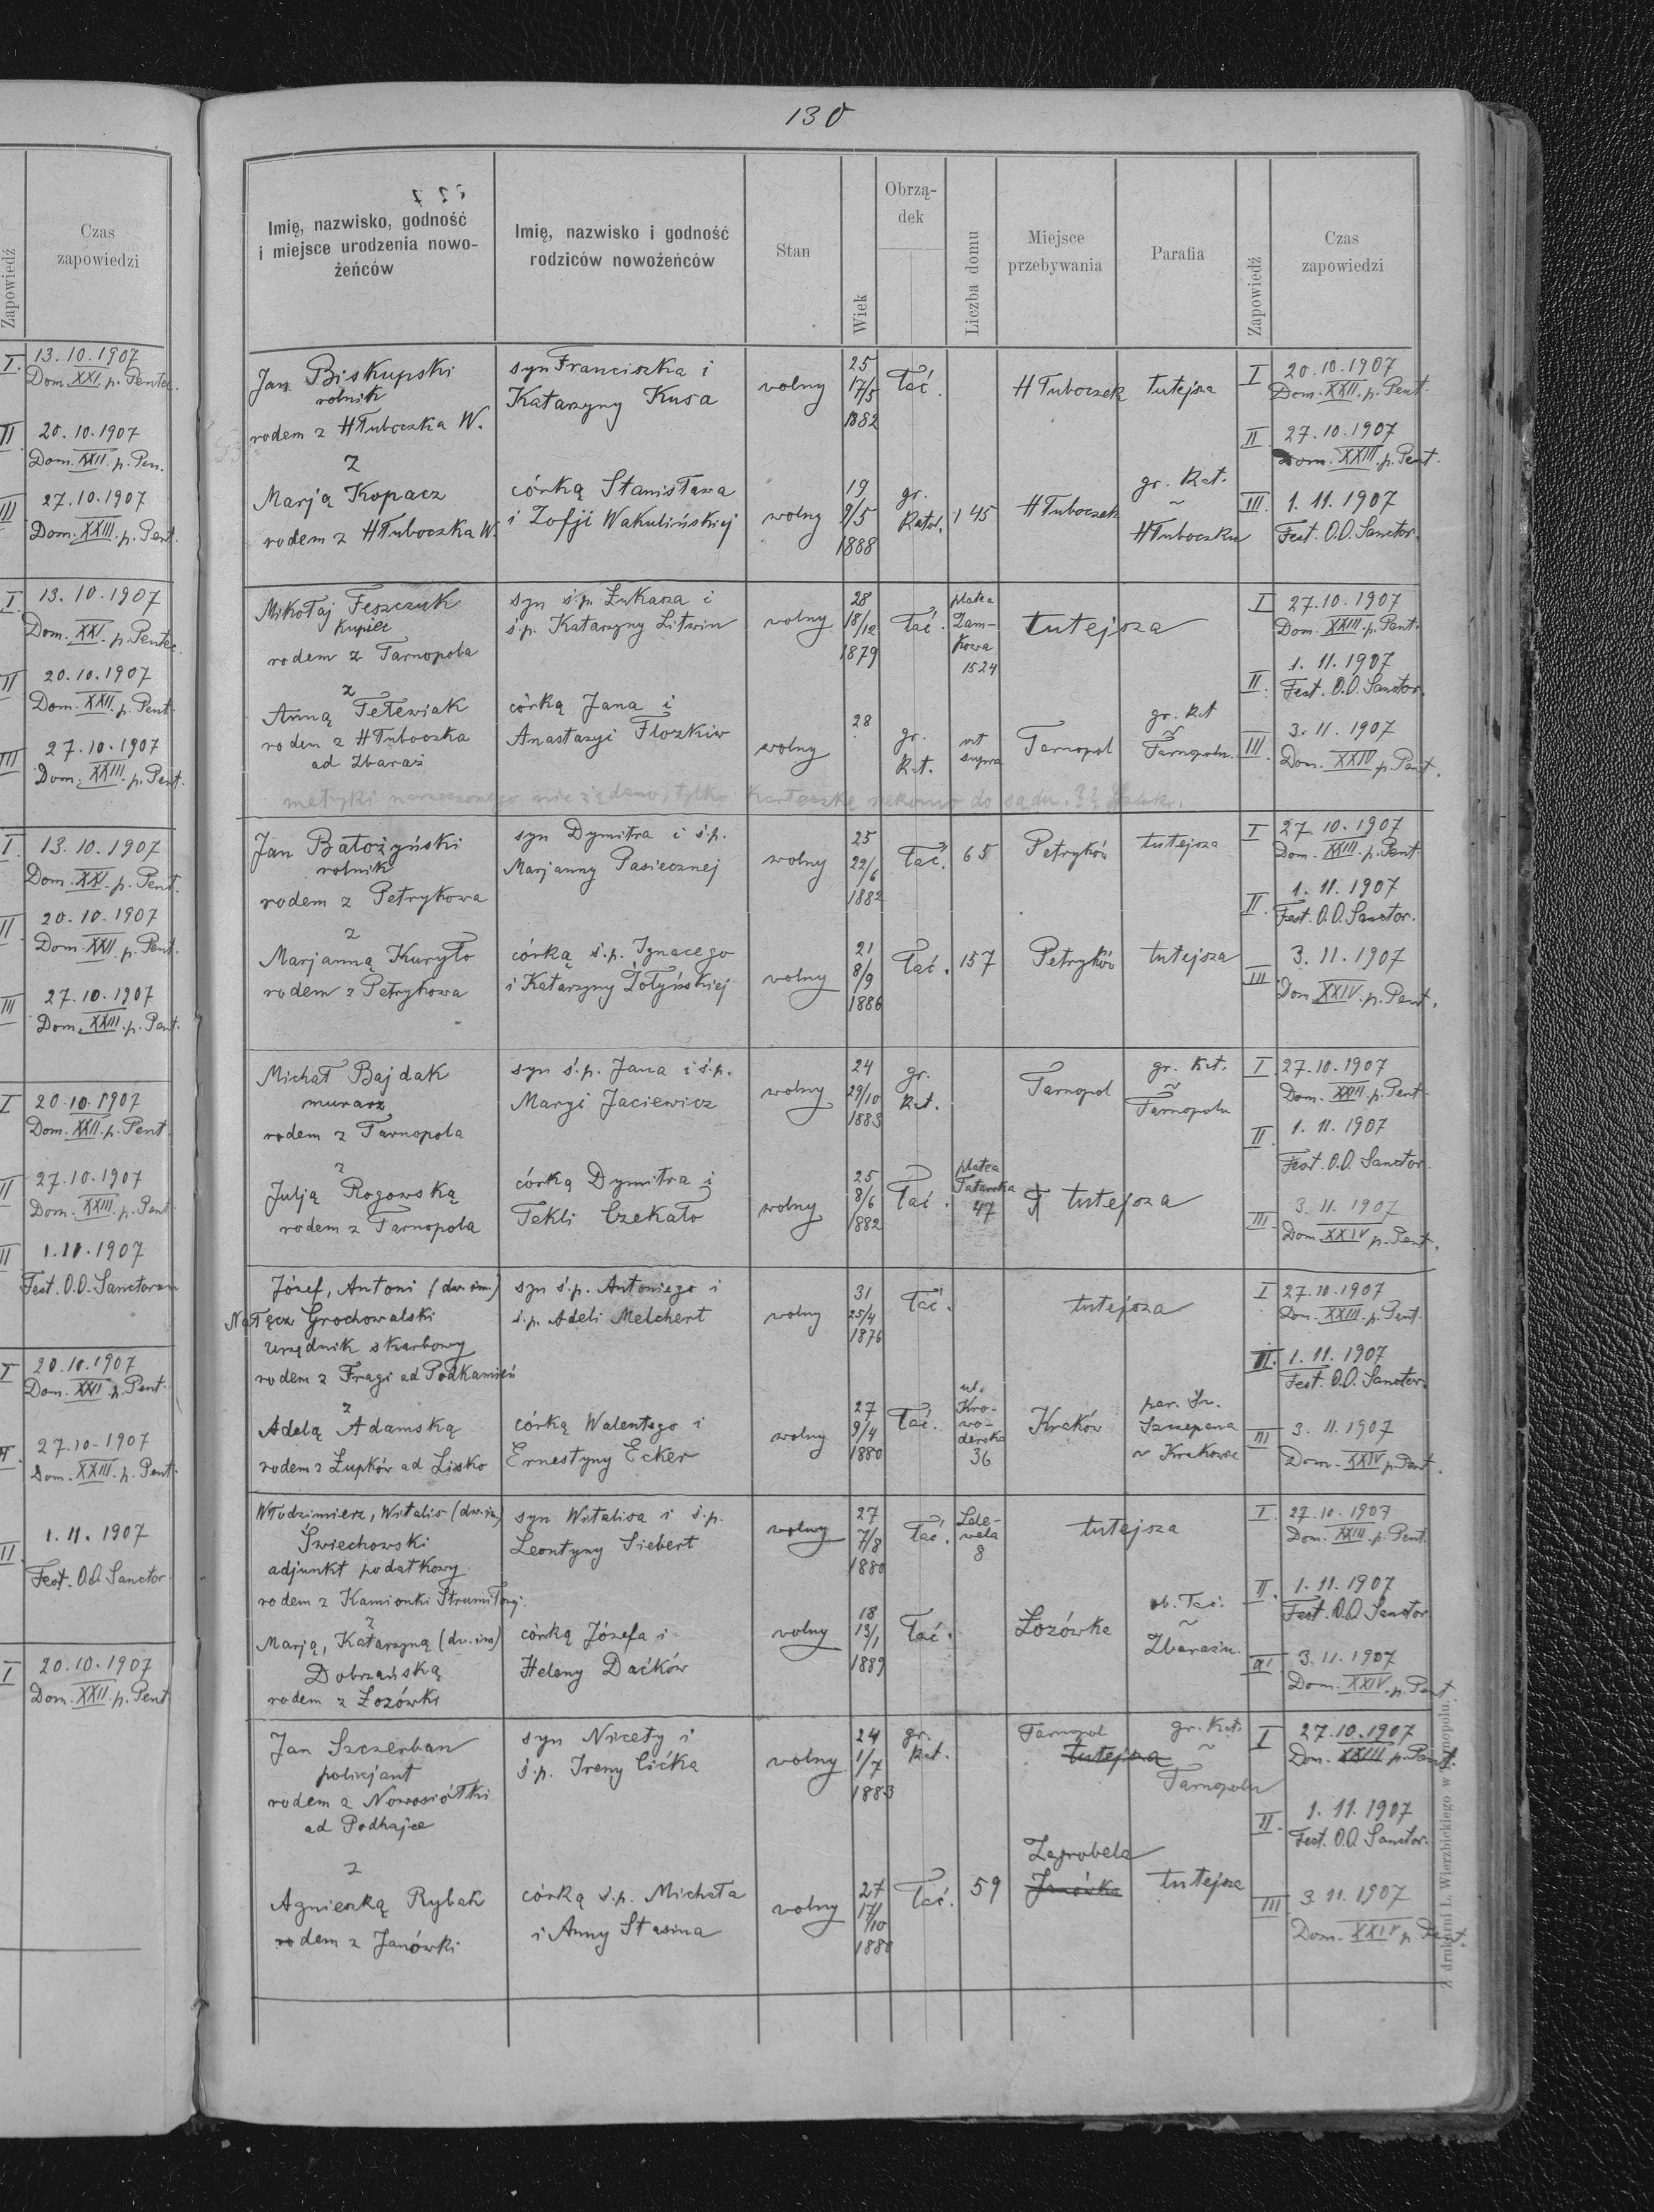 Zapowiedź
Czas
zapowiedzi
I. 13.10.1907
Dom. XXI. p. Pentec.
II 20.10.1907
Dom. XXII. p. Pen.
III 27.10.1907
Dom. XXIII. p. Pent.
I. 13.10.1907
Dom. XXI. p. Pentec.
II 20.10.1907
Dom. XXII. p. Pent.
III 27.10.1907
Dom. XXIII. p. Pent.
I. 13.10.1907
Dom. XXI. p. Pent.
II. 20.10.1907
Dom. XXII. p. Pent.
III 27.10.1907
Dom. XXIII. p. Pent.
I 20.10.1907
Dom. XXII. p. Pent.
II 27.10.1907
Dom. XXIII. p. Pent.
II 1.11.1907
Fest. O.O. Sanctorum
I 20.10.1907
Dom. XXI. p. Pent.
II. 27.10-1907
Dom. XXIII. p. Pent.
II. 1.11.1907
Fest. O.O. Sanctor.
I 20.10.1907
Dom. XXII. p. Pent.
130
Imię, nazwisko, godność
i miejsce urodzenia nowo-
żeńców
Imię, nazwisko i godność
rodziców nowożeńców
Stan
Wiek
Obrzą-
dek
Liczba domu
Miejsce
przebywania
Parafia
Zapowiedź
Czas
zapowiedzi
Jan Biskupski
rolnik
rodem z Hłuboczka W.
syn Franciszka i
Katarzyny Kusa
wolny
25
17/5
1882
łać.
Hłuboczek
tutejsza
I 20.10.1907
Dom. XXII. p. Pent.
II. 27.10.1907
Dom. XXIII. p. Pent.
z
Marją Kopacz
rodem z Hłuboczka W.
córką Stanisława
i Zofji Wakulińskiej
wolny
19
9/5
1888
gr.
Katol.
145
Hłuboczek
gr. Kat.
~
Hłuboczku
III. 1.11.1907
Fest. O.O. Sanctor.
Mikołaj Feszczuk
kupiec
rodem z Tarnopola
syn ś.p. Łukasza i
ś.p. Katarzyny Litwin
wolny
28
18/12
1879
łać.
platea
Zam-
kowa
1524
tutejsza
I 27.10.1907
Dom. XXIII. p. Pent.
II. 1.11.1907
Fest. O.O. Sanctor.
z
Anną Tetewiak
rodem z Hłuboczka
ad Zbaraż
córką Jana i
Anastazyi Flozkiw
wolny
28
gr.
Kat.
ut
supra
Tarnopol
gr. Kat
~
Tarnopolu.
III. 3.11.1907
Dom. XXIV p. Pent.
metryki narzeczonego nie żądano, tylko karteczkę do sądu.
Jan Batożyński
rolnik
rodem z Petrykowa
syn Dymitra i ś.p.
Marjanny Pasiecznej
wolny
25
22/6
1882
łać.
65
Petryków
tutejsza
I 27.10.1907
Dom. XXIII. p. Pent.
II. 1.11.1907
Fest. O.O. Sanctor.
z
Marjanną Kuryło
rodem z Petrykowa
córką ś.p. Ignacego
i Katarzyny Żołyńskiej
wolny
21
8/9
1886
łać.
157
Petryków
tutejsza
III 3.11.1907
Dom. XXIV. p. Pent.
Michał Bajdak
murarz
rodem z Tarnopola
syn ś.p. Jana i ś.p.
Maryi Jaciewicz
wolny
24
29/10
1883
gr.
Kat.
Tarnopol
gr. Kat.
~
Tarnopolu
I 27.10.1907
Dom. XXIII. p. Pent.
II. 1.11.1907
Fest. O.O. Sanctor.
z
Julją Rogowską
rodem z Tarnopola
córką Dymitra i
Tekli Czekało
wolny
25
8/6
1882
łać.
platea
Tatarska
47
tutejsza
III. 3.11.1907
Dom. XXIV p. Pent.
Józef, Antoni (dw. im.)
Nałęcz Grochowalski
urzędnik skarbowy
rodem z Fragi ad Podkamień
syn ś.p. Antoniego i
ś.p. Adeli Melchert
wolny
31
25/4
1876
łać.
tutejsza
I 27.10.1907
Dom. XXIII. p. Pent.
II. 1.11.1907
Fest. O.O. Sanctor.
z
Adelą Adamską
rodem z Łupków ad Lisko
córką Walentego i
Ernestyny Ecker
wolny
27
9/4
1880
łać.
ul.
Kro-
wo-
derska
36
Kraków
par. Św.
Szczepana
w Krakowie
III 3.11.1907
Dom. XXIV p. Pent.
Włodzimierz, Witalis (dw. im.)
Świechowski
adjunkt podatkowy
rodem z Kamionki Strumiłowej.
syn Witalisa i ś.p.
Leontyny Siebert
wolny
27
7/8
1880
łać.
Lele-
wela
8
tutejsza
I. 27.10.1907
Dom. XXIII. p. Pent.
II. 1.11.1907
Fest. O.O. Sanctor.
z
Marją, Katarzyną (dw. im)
Dobrzańską
rodem z Łozówki
córką Józefa i
Heleny Daćków
wolny
18
13/1
1889
łać.
Łozówka
ob. łać.
~
Zbarażu.
III 3.11.1907
Dom. XXIV. p. Pent.
Jan Szczerban
policjant
rodem z Nowosiółki
ad Podhajce
syn Nicety i
ś.p. Ireny Cićka
wolny
24
1/7
1883
gr.
Kat.
Tarnopol
tutejsza
gr. Kat.
~
Tarnopolu
I 27.10.1907
Dom. XXIII p. Pent.
II. 1.11.1907
Fest. O.O. Sanctor.
z
Agnieszką Rybak
rodem z Janówki
córką ś.p. Michała
i Anny Stasina
wolny
27
17/10
1880
łać.
59
Zagrobela
Janówka
tutejsza
III 3.11.1907
Dom. XXIV p. Pent.
Z drukarni L. Wierzbickiego w Tarnopolu.